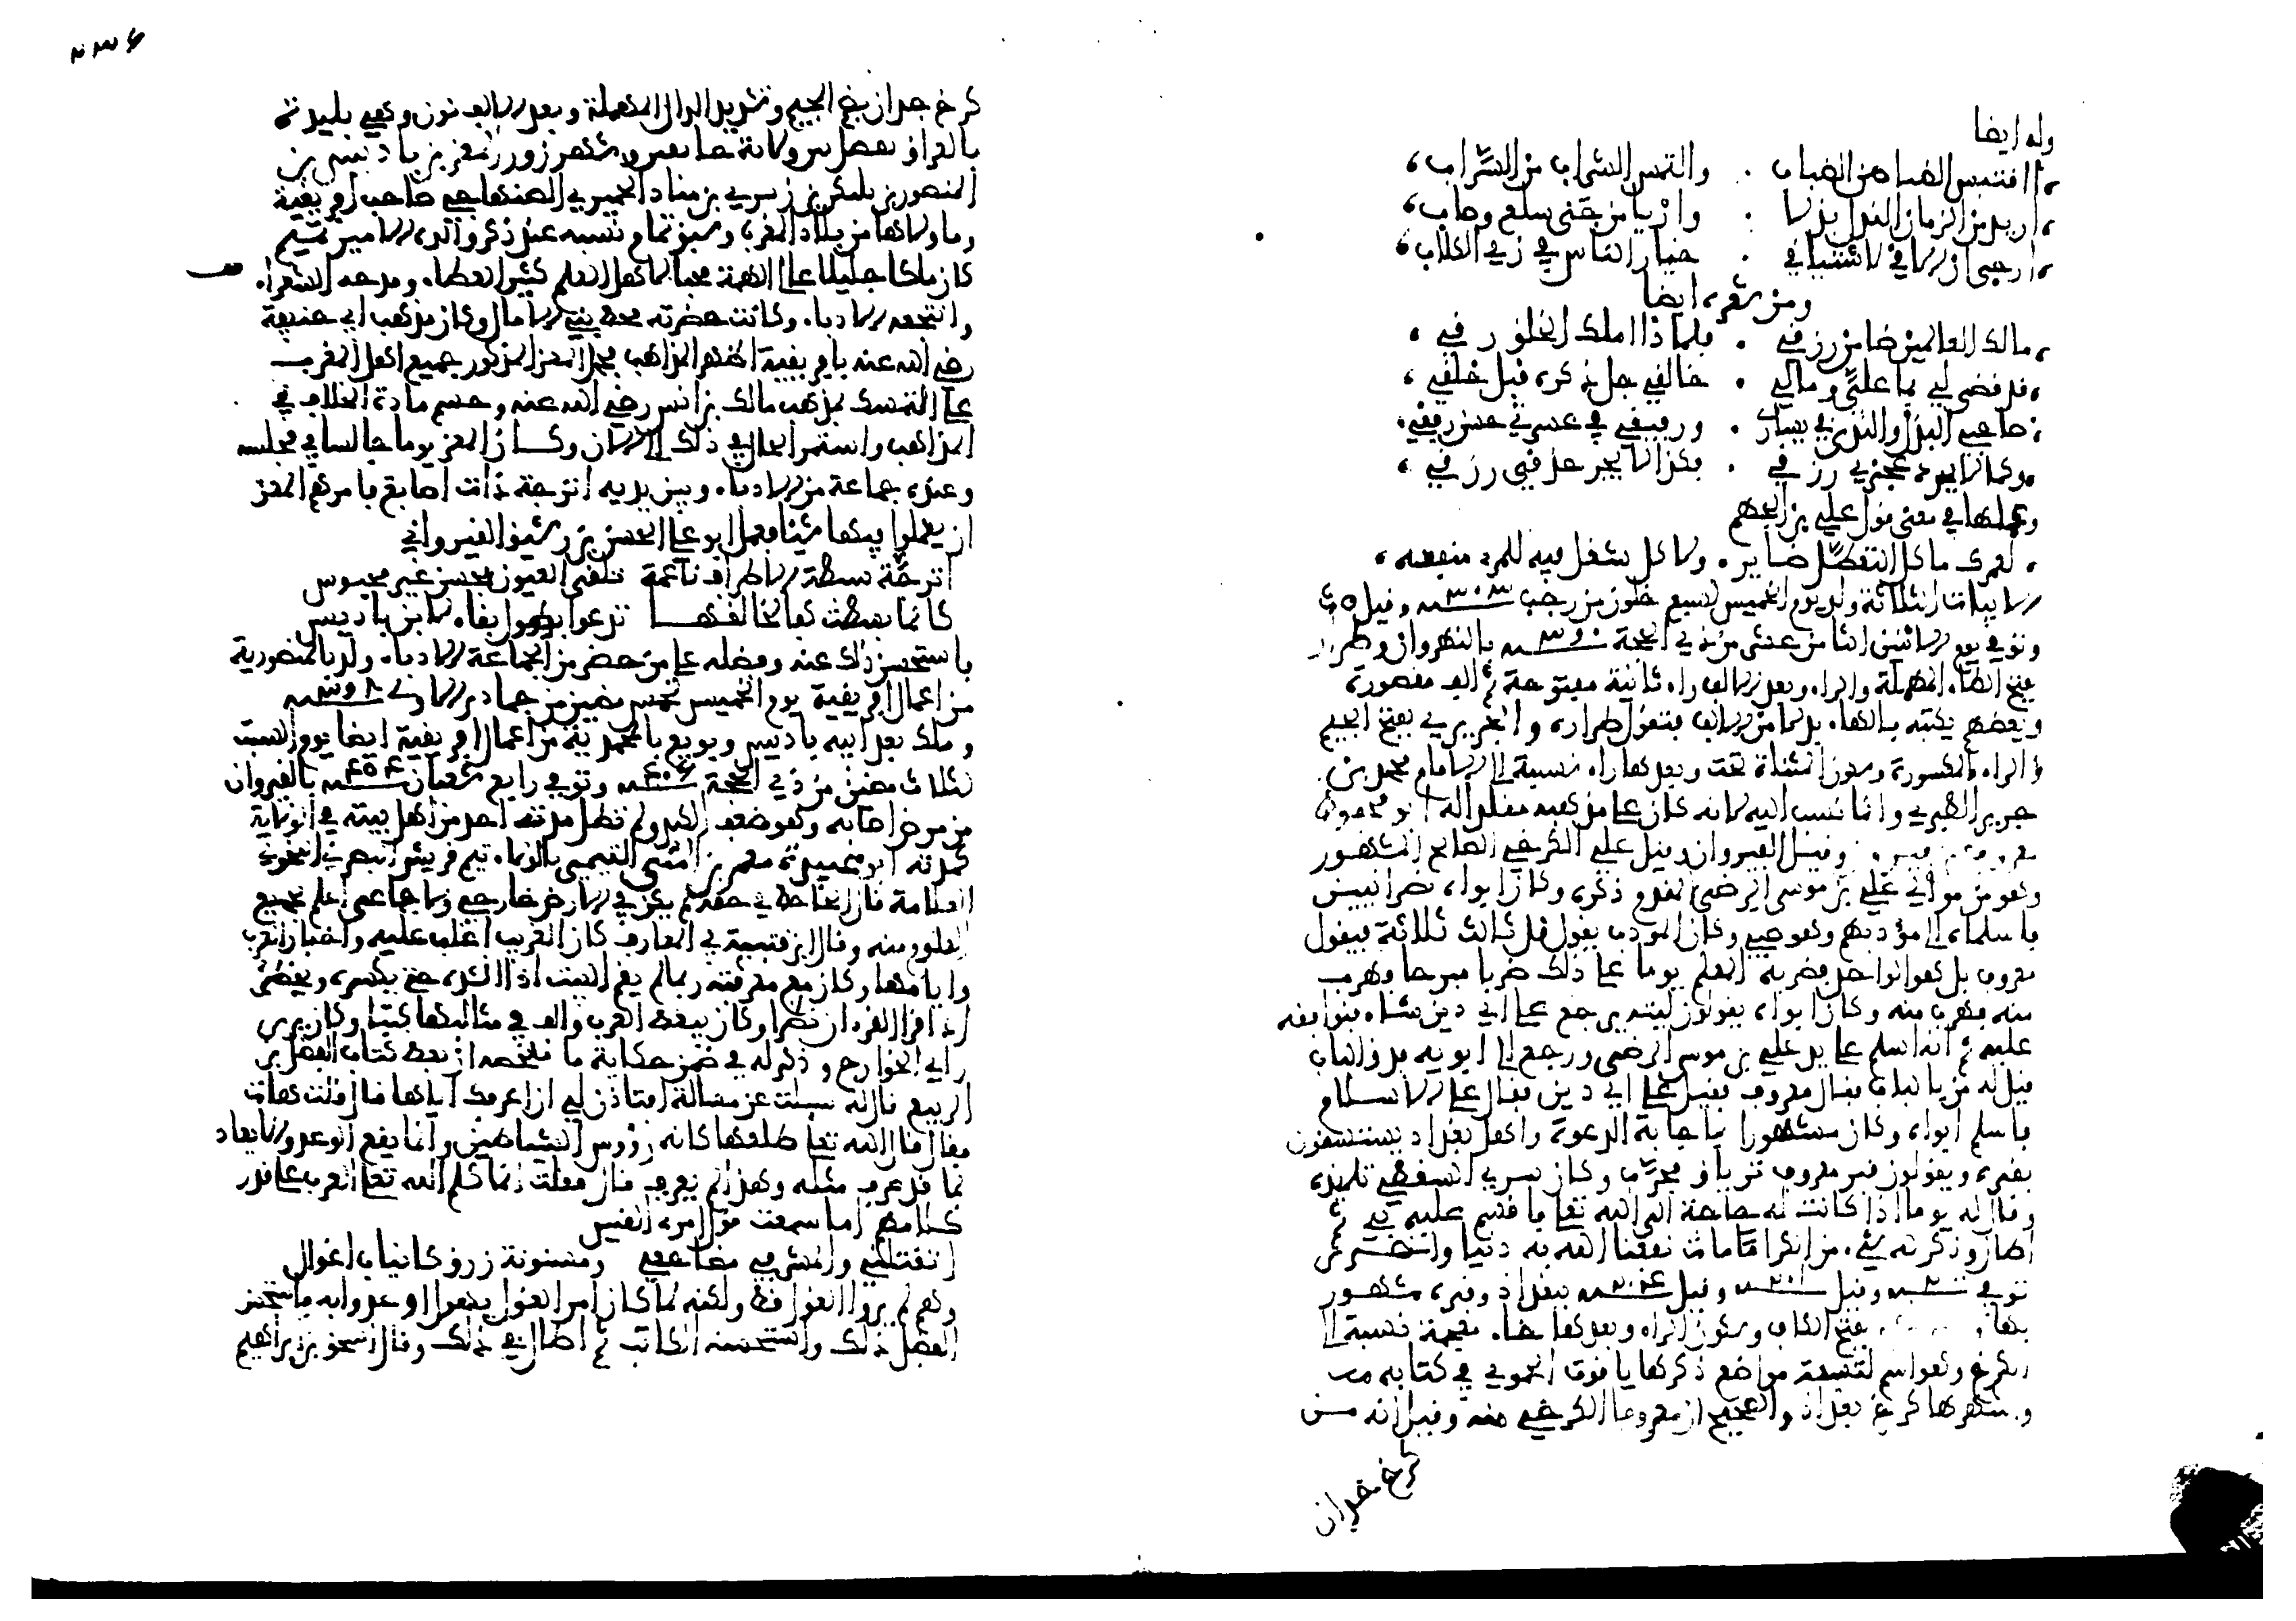 وله ايضا
أأقتبس الضيا من الضباب . والتمس الشراب من السراب
اريد من الزمان النذل بذلا . واريا من جنى سلع وصاب
ارجى ان الاقي لاشتياقي . خيار الناس في زي الكلاب
ومن شعره ايضا
مالك العالمين ضامن رزقي . فلماذا املك الخلق رقي
قد قضى لي بما علي ومالي . خالقي جل ذكره قبل خلقي
صاحبي البذل والندى في يساري . ورفيقي في عسرتي حسن رفقي
وكما لا يرد عجزي رزقي . فكذا لا يجر حذقي رزقي
وعملها في معنى قول علي بن الجهم
لعمرك ما كل التعطل ضاير . ولا كل شغل فيه للمرء منفعه
الابيات الثلاثة ولد يوم الخميس لسبع خلون من رجب ٣٠٣ وقيل ٥
وتوفي يوم الاثنين الثامن عشر من ذي الحجة ٣٩٠ بالنهروان وطرارا
بفتح الطاء المهملة والراء وبعد الالف راء ثانية مفتوحة ثم الف مقصورة
وبعضهم يكتبه بالهاء بدلا من الالف فتقول طراره والجريري بفتح الجيم
والراء المكسورة وسكون المثناة تحت وبعدها راء نسبة الى الامام محمد بن
جرير الطبري وانما نسب اليه لانه كان على مذهبه مقلدا له ابو محفوظ
وقيل الفيروان وقيل علي الكرخي الصالح المشهور
وهو من موالي علي بن موسى الرضى المقدم ذكره وكان ابواه نصرانيين
فاسلماه الى مؤدبهم وهو صبي وكان المودب يقول قل ثالث ثلاثة فيقول
معروف بل هو الواحد فضربه المعلم يوما على ذلك ضربا مبرحا وهرب
منه فهرب منه وكان ابواه يقولون ليته يرجع على اي دين شاء فنوافقه
عليه ثم انه اسلم على يد علي بن موسى الرضى ورجع الى ابويه فدق الباب
فقيل له من بالباب فقال معروف فقيل على اي دين فقال على الاسلام
فاسلم ابواه وكان مشهورا باجابة الدعوة واهل بغداد يستسقون
بقبره ويقولون قبر معروف ترياق مجرب وكان سري السقطي تلميذه
وقال له يوما اذا كانت له حاجة الى الله تعا فاقسم عليه بي ثم
اطال وذكر له شيء من الكرامات نفعنا الله به دنيا واخرى
توفي ٢٠٠ وقيل ٢٠١ وقيل ٢٠٤ ببغداد وقبره مشهور
بها بفتح الكاف وسكون الراء وبعدها خاء معجمة نسبة الى
الكرخ وهو اسم لتسعة مواضع ذكرها ياقوت الحموي في كتابه
واشهرها كرخ بغداد والصحيح ان معروفا الكرخي منه وقيل انه من
كرخ جدان
٢٣٤
كرخ جدان بضم الجيم وتشديد الدال المهملة وبعد الالف نون وهي بليدة
بالعراق تفصل بين ولاية خانقين وشهرزور المعز بن باديس بن
المنصور بن بلكين بن زيري بن مناد الحميري الصنهاجي صاحب افريقية
وما والاها من بلاد المغرب وسبق تمام نسبه عند ذكر والده الامير تميم
كان ملكا جليلا عالي الهمة محبا لاهل العلم كثير العطاء ومدحه الشعراء
وانتجعه الادباء وكانت حضرته محط بني الامال وكان مذهب ابي حنيفة
رضي الله عنه بافريقية اظهر المذاهب فحمل المعز المذكور جميع اهل المغرب
على التمسك بمذهب مالك بن انس رضي الله عنه وحسم مادة الخلاف في
المذاهب واستمر الحال في ذلك الى الان وكان المعز يوما جالسا في مجلسه
وعنده جماعة من الادباء وبين يديه اترجة ذات اصابع فامرهم المعز
ان يعملوا فيها شيئا فعمل ابو علي الحسن بن رشيق القيرواني
اترجة سبطة الاطراف ناعمة تلقى العيون بحسن غير مبخوس
كانما بسطت كفا لخالقها تدعوا بطول بقاء لابن باديس
فاستحسن ذلك عنه وفضله على من حضر من الجماعة الادباء ولد بالمنصورية
من اعمال افريقية يوم الخميس لخمس مضين من جمادى الاولى ٣٩٨
وملك بعد ابيه باديس وبويع بالمحمدية من اعمال افريقية ايضا يوم السبت
لثلاث مضين من ذي الحجة ٤٠٦ وتوفي رابع شعبان ٤٥٤ بالقيروان
من مرض اصابه وهو ضعف الكبد ولم تطل مدة احد من اهل بيته في الولاية
كمدته ابو عبيدة معمر بن المثنى التيمي بالولاء تيم قريش البصري النحوي
العلامة قال الجاحظ في حقه لم يكن في الارض خارجي ولا جماعي اعلم بجميع
العلوم منه وقال ابن قتيبة في المعارف كان الغريب اغلب عليه واخبار العرب
وايامها وكان مع معرفته ربما لم يقم البيت اذا انشده حتى يكسره ويخطئ
اذا قرا القرءان نظرا وكان يبغض العرب والف في مثالبها كتبا وكان يرى
راي الخوارج وذكر له في ضمن حكاية ما ملخصه ان بعض كتاب الفضل بن
الربيع قال له سيلت عن مسالة افتاذن لي ان اعرفك اياها قال قلت هات
فقال قال الله تعا طلعها كانه رؤوس الشياطين وانما يقع الوعد والايعاد
بما قد عرف مثله وهذا لم يعرف قال فقلت انما كلم الله تعا العرب على قدر
كلامهم اما سمعت قول امرء القيس
ايقتلني والمشرفي مضاجعي ومسنونة زرق كانياب اغوال
وهم لم يروا الغول قط ولكنه لما كان امر الغول يهولهم اوعدوا به فاستحسن
الفضل ذلك واستحسنه الكاتب ثم اطال في ذلك وقال اسحق بن ابراهيم